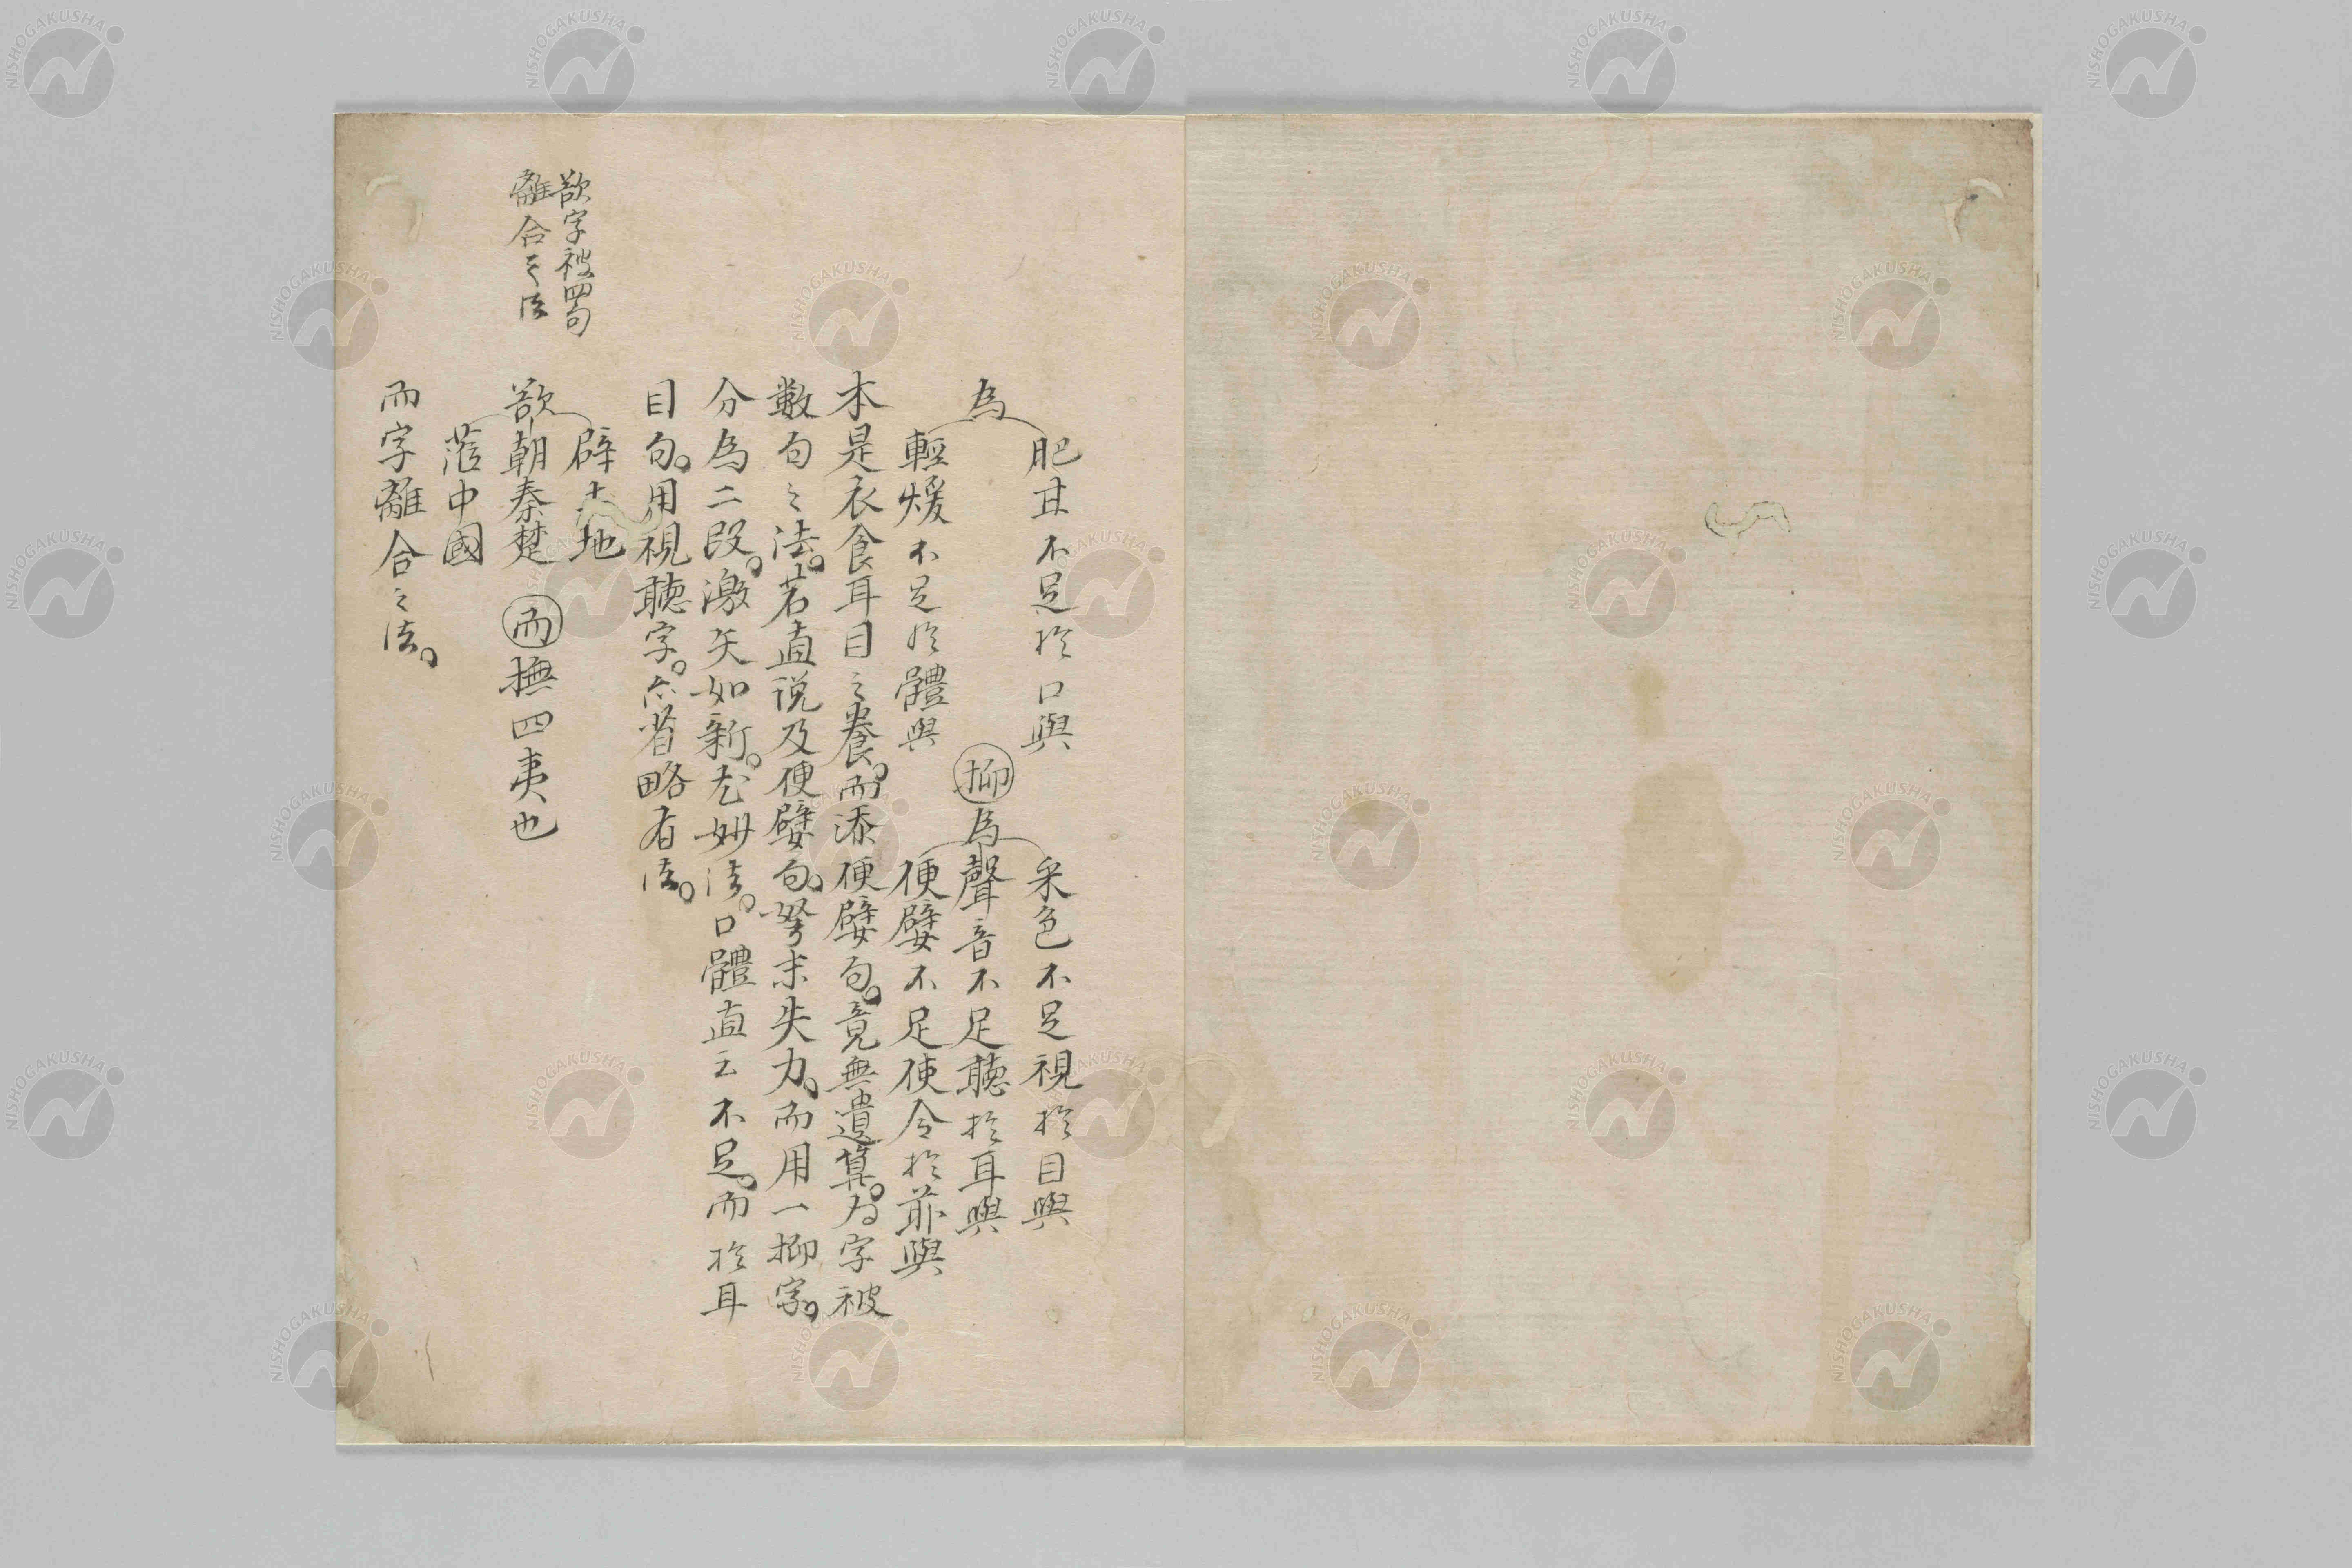 肥甘不足於口與
為
輕煖不足於體與
抑為
采色不足視於目與
聲音不足聽於耳與
便嬖不足使令於前與
本是衣食耳目之養。而添便嬖句。竟無遺算。為字被
數句之法。若直説及便嬖句。弩末失力。而用一抑字。
分為二段。激矢如新。尤妙法。口體直云不足。而於耳
目句。用視聽字。亦省略有法。
欲字被四句
離合之法
辟土地
欲朝秦楚 而撫四夷也
莅中國
而字離合之法。
NISHOGAKUSHA